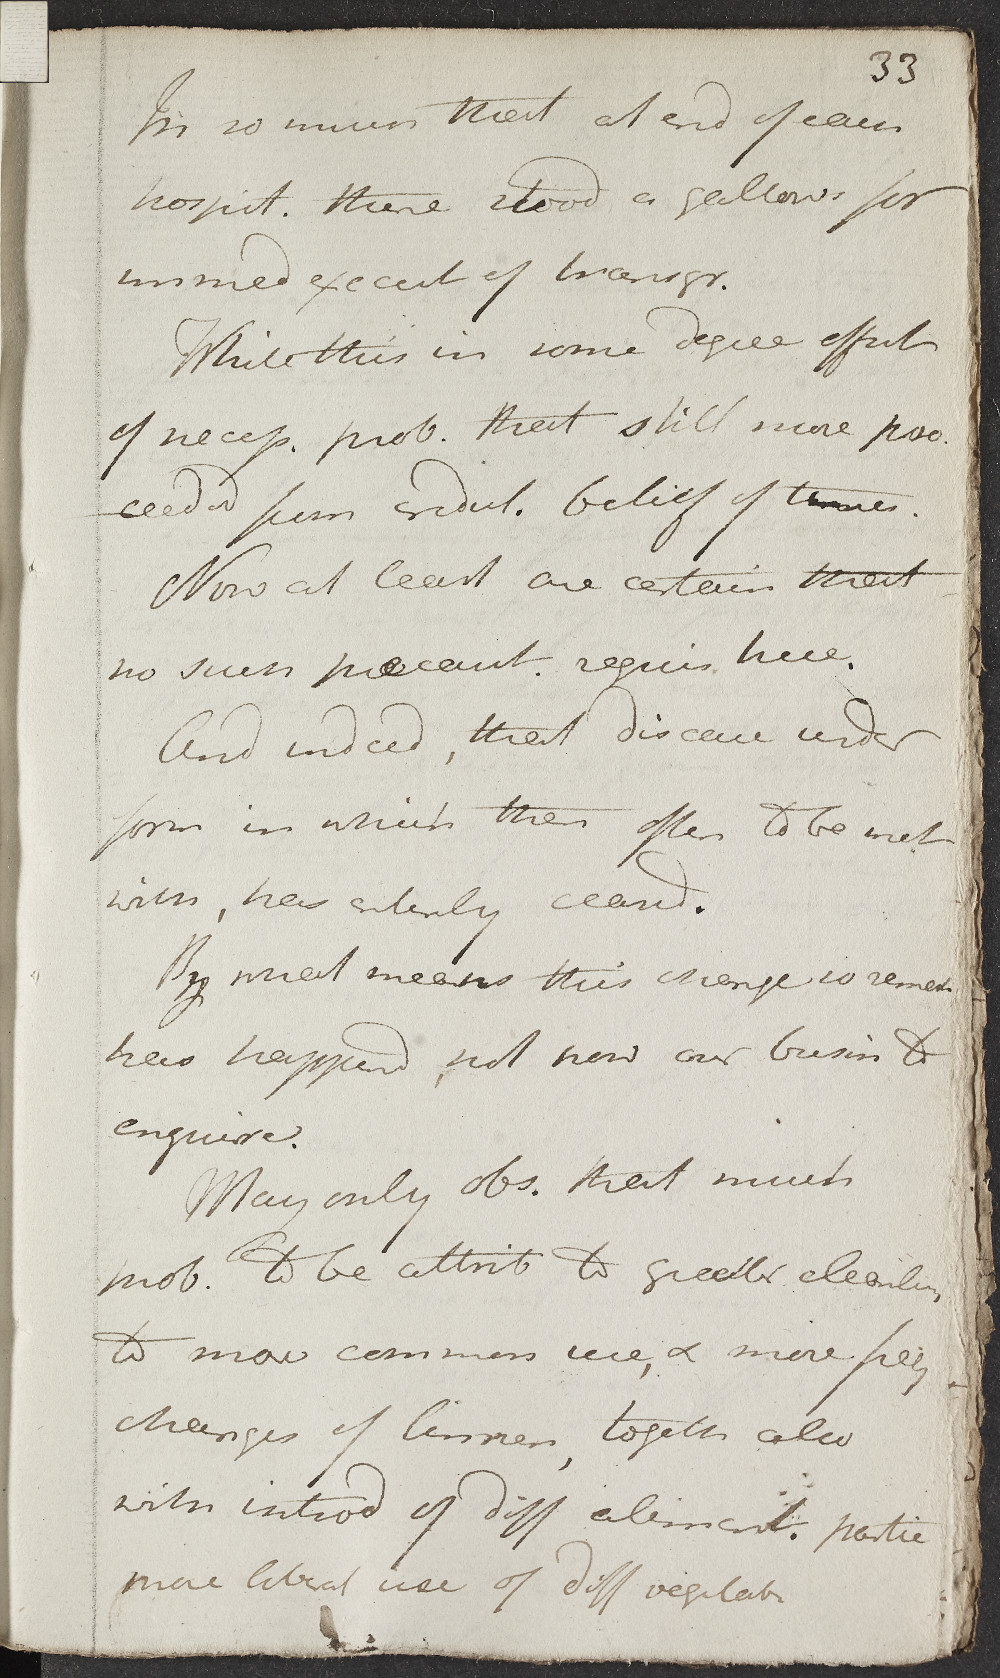 33
In so much that at end of each
hospit. there stood a gallows for
immed execut of transgr.
While this in some degree effect
of necess. prob. that still more pro-
ceeded from credul. belief of times.
Now at least are certain that
no such precaut. requir here.
And indeed, that disease under
form in which then often to be met
with, has entirely ceased.
By what means this change so remark
has happend, not now our busin to
enquire.
May only obs. that much
prob. to be attrib to greater cleanlin,
to more common use, & more freq
changes of linnen, togeth also
with introd of diff aliment. partic
more liberal use of diff vegetab